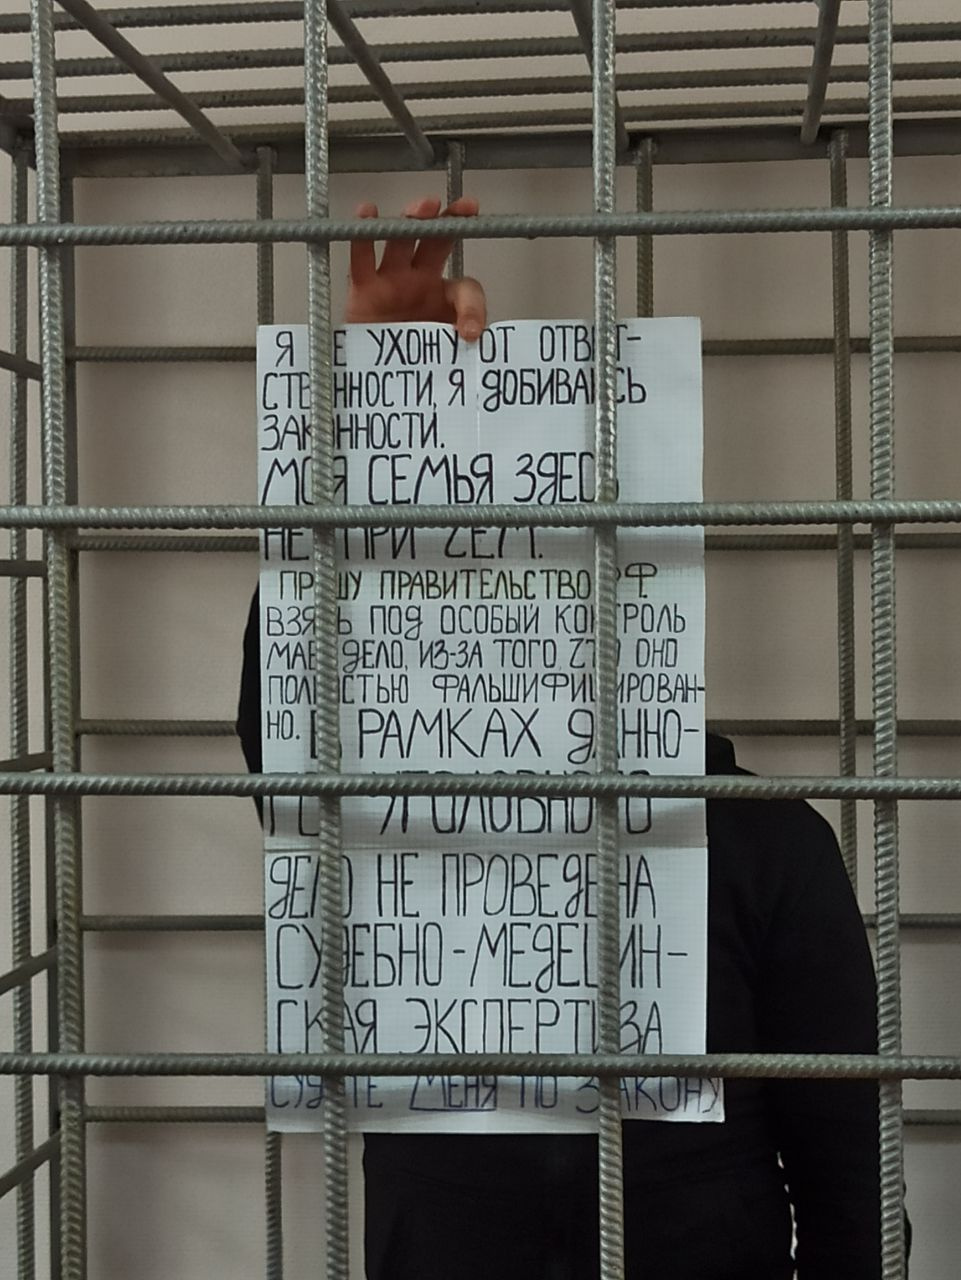 Я НЕ УХОЖУ ОТ ОТВЕТ-
СТВЕННОСТИ, Я ДОБИВАЮСЬ
ЗАКОННОСТИ.
МОЯ СЕМЬЯ ЗДЕСЬ
НЕ ПРИ ЧЕМ.
ПРОШУ ПРАВИТЕЛЬСТВО РФ
ВЗЯТЬ ПОД ОСОБЫЙ КОНТРОЛЬ
МАЕ ДЕЛО, ИЗ-ЗА ТОГО, ЧТО ОНО
ПОЛНОСТЬЮ ФАЛЬШИФИЦИРОВАН-
НО. В РАМКАХ ДАННО-
ГО УГОЛОВНОГО
ДЕЛО НЕ ПРОВЕДЕНА
СУДЕБНО-МЕДЕЦИН-
СКАЯ ЭКСПЕРТИЗА
СУДИТЕ МЕНЯ ПО ЗАКОНУ